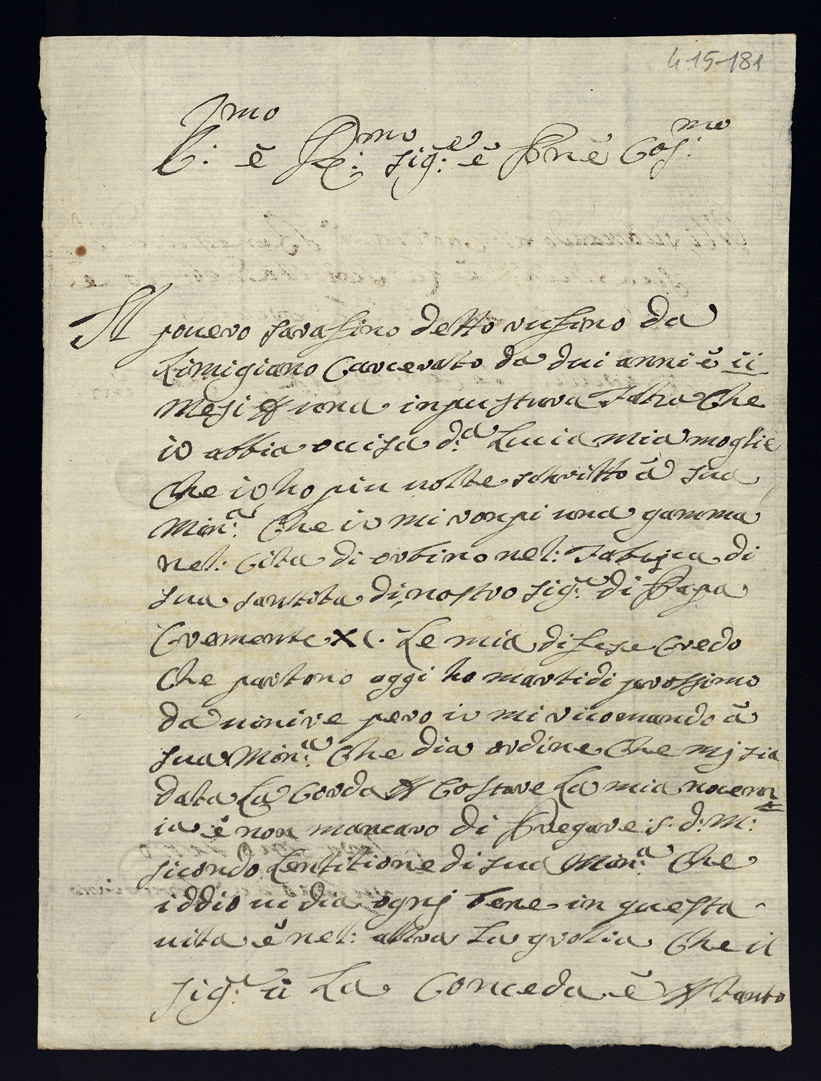 4-15-181
Ill:mo è Re:mo sig:e è Pnè Cos:mo
Il povero Sarafino detto rusino da
Rimigiano Carcerato da dui anni è ii
mesi una ingustura Che
io abbia occisa d:a Lucia mia moglie
Che io ho piu volte schritto à sua
Min:a Che io mi ronpi una gamma
nel: Cita di orbino nel: Fabrica di
sua santita di nostro sig:e di Papa
Cremente XI. Le mia difese Credo
Che partono aggi ho martidi prossimo
da uinire pero io mi ricomando à
sua Min:a Che dia ordine Che mj sia
data La Corda Costare La mia nocen
ia è non mancaro di Pregare s: d: M:
sicondo Lentitione di sua Min:a Che
iddio ui dia ognj bene in questa
uita è nel: altra La grolia Che il
sig:e ui La Conceda è tanto